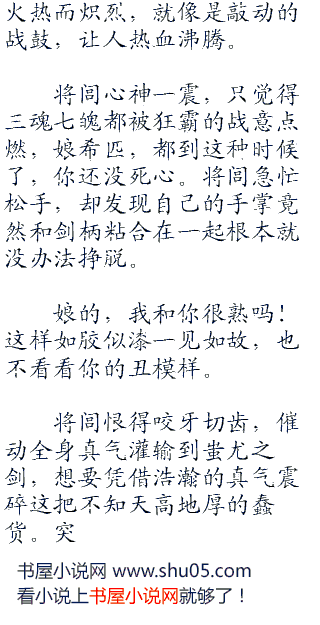 火热而炽烈，就像是敲动的
战鼓，让人热血沸腾。
将闾心神一震，只觉得
三魂七魄都被狂霸的战意点
燃，娘希匹，都到这种时候
了，你还没死心。将闾急忙
松手，却发现自己的手掌竟
然和剑柄粘合在一起根本就
没办法挣脱。
娘的，我和你很熟吗！
这样如胶似漆一见如故，也
不看看你的丑模样。
将闾恨得咬牙切齿，催
动全身真气灌输到蚩尤之
剑，想要凭借浩瀚的真气震
碎这把不知天高地厚的蠢
货。突
书屋小说网 www.shu05.com
看小说上书屋小说网就够了！